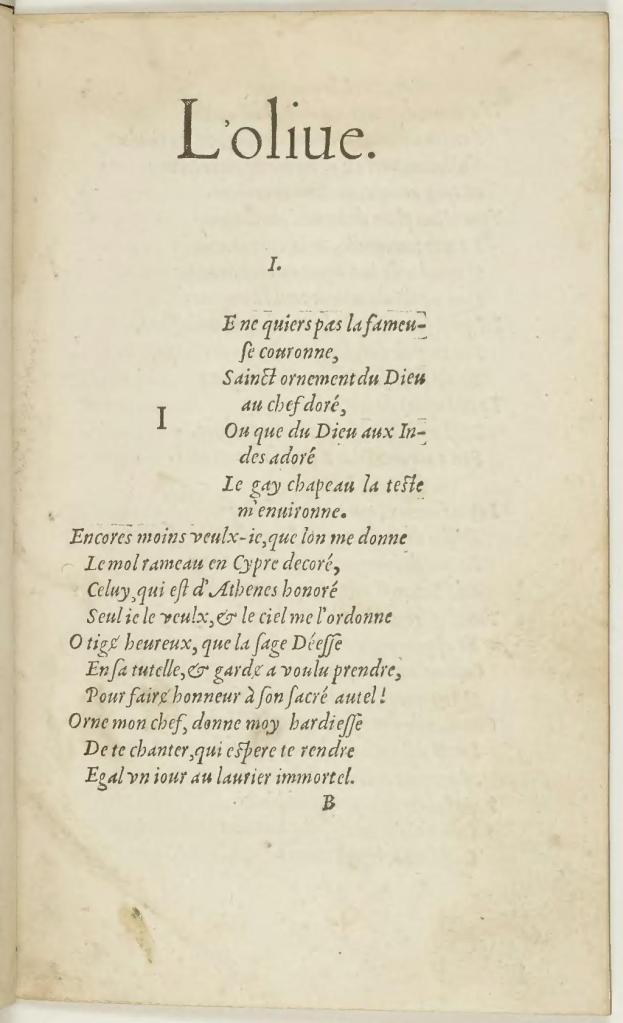 L'oliue.
I.
I
E ne quiers pas la fameu-
ſe couronne,
Sainct ornement du Dieu
au chef doré,
Ou que du Dieu aux In-
des adoré
Le gay chapeau la teſte
m'enuironne.
Encores moins veulx-ie, que lon me donne
Le mol rameau en Cypre decoré,
Celuy, qui eſt d'Athenes honoré
Seul ie le veulx, & le ciel me l'ordonne
O tigɇ heureux, que la ſage Déeſſe
En ſa tutelle, & gardɇ a voulu prendre,
Pour fairɇ honneur à ſon ſacré autel!
Orne mon chef, donne moy hardieſſe
De te chanter, qui eſpere te rendre
Egal vn iour au laurier immortel.
B